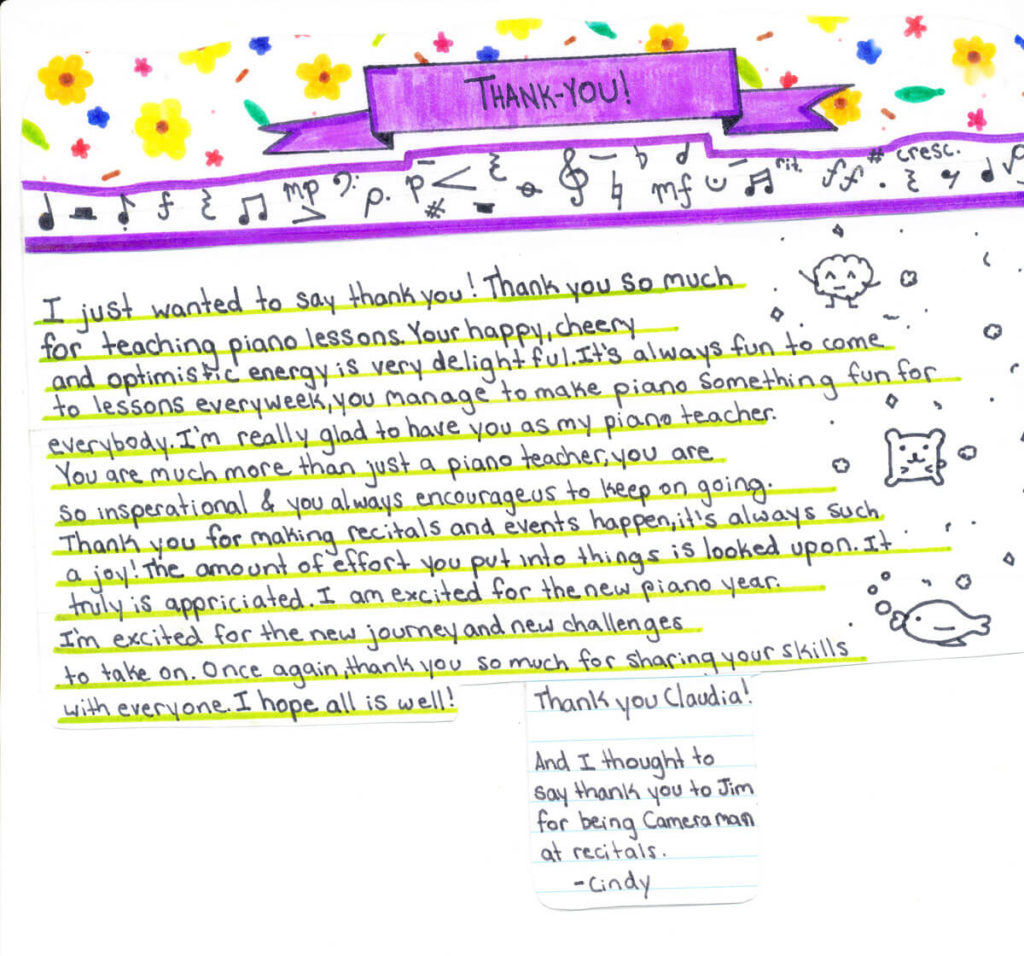 THANK-YOU!
mp
p.
p
mf
rit.
ff
cresc.
f
I just wanted to say thank you! Thank you so much
for teaching piano lessons. Your happy, cheery
and optimistic energy is very delightful. It's always fun to come
to lessons everyweek, you manage to make piano something fun for
everybody. I'm really glad to have you as my piano teacher.
You are much more than just a piano teacher, you are
so insperational & you always encourage us to keep on going.
Thank you for making recitals and events happen, it's always such
a joy! The amount of effort you put into things is looked upon. It
truly is appriciated. I am excited for the new piano year.
I'm excited for the new journey and new challenges
to take on. Once again, thank you so much for sharing your skills
with everyone. I hope all is well!
Thank you Claudia!
And I thought to
say thank you to Jim
for being Cameraman
at recitals.
-Cindy